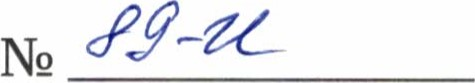 № 89-И